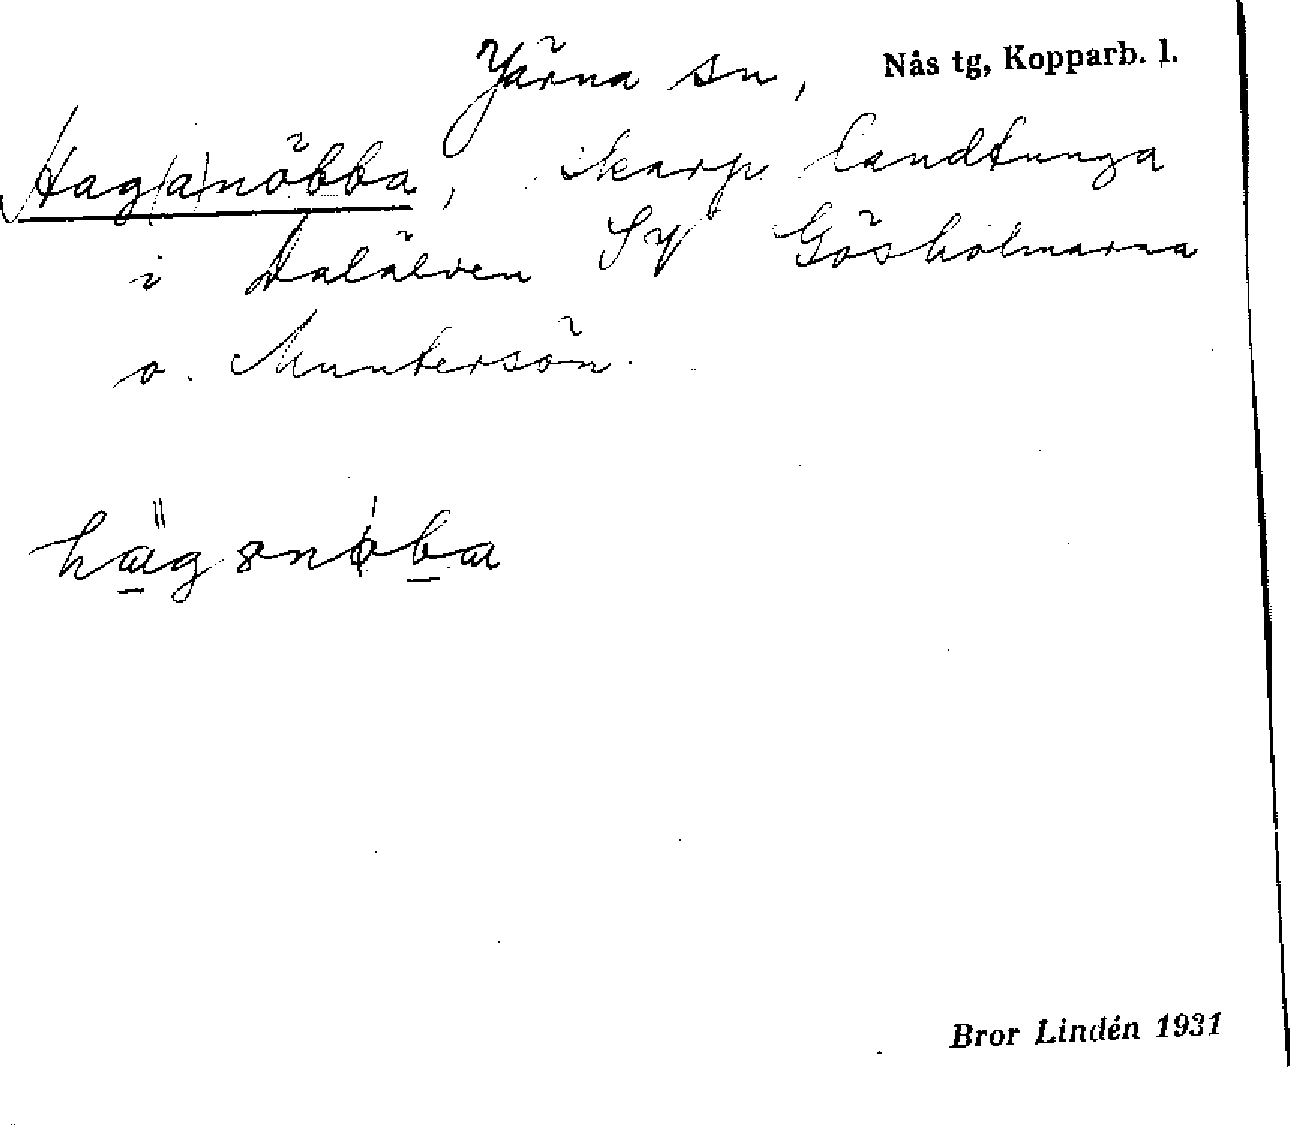 Järna sn, Nås tg, Kopparb. l.
Hag(a)nöbba, skarp landtunga
i Dalälven SV Gösholmarna
o. Muntersön.
Bror Lindén 1931